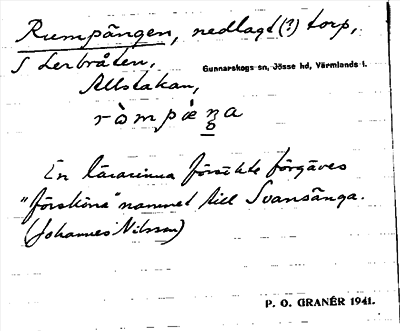 Rumpängen, nedlagt(?) torp,
S Lerbråten,
Gunnarskogs sn, Jösse hd, Värmlands l.
Allstakan,
En lärarinna försökte förgäves
"försköna" namnet till Svansänga.
(Johannes Nilsson)
P. O. GRANÉR 1941.